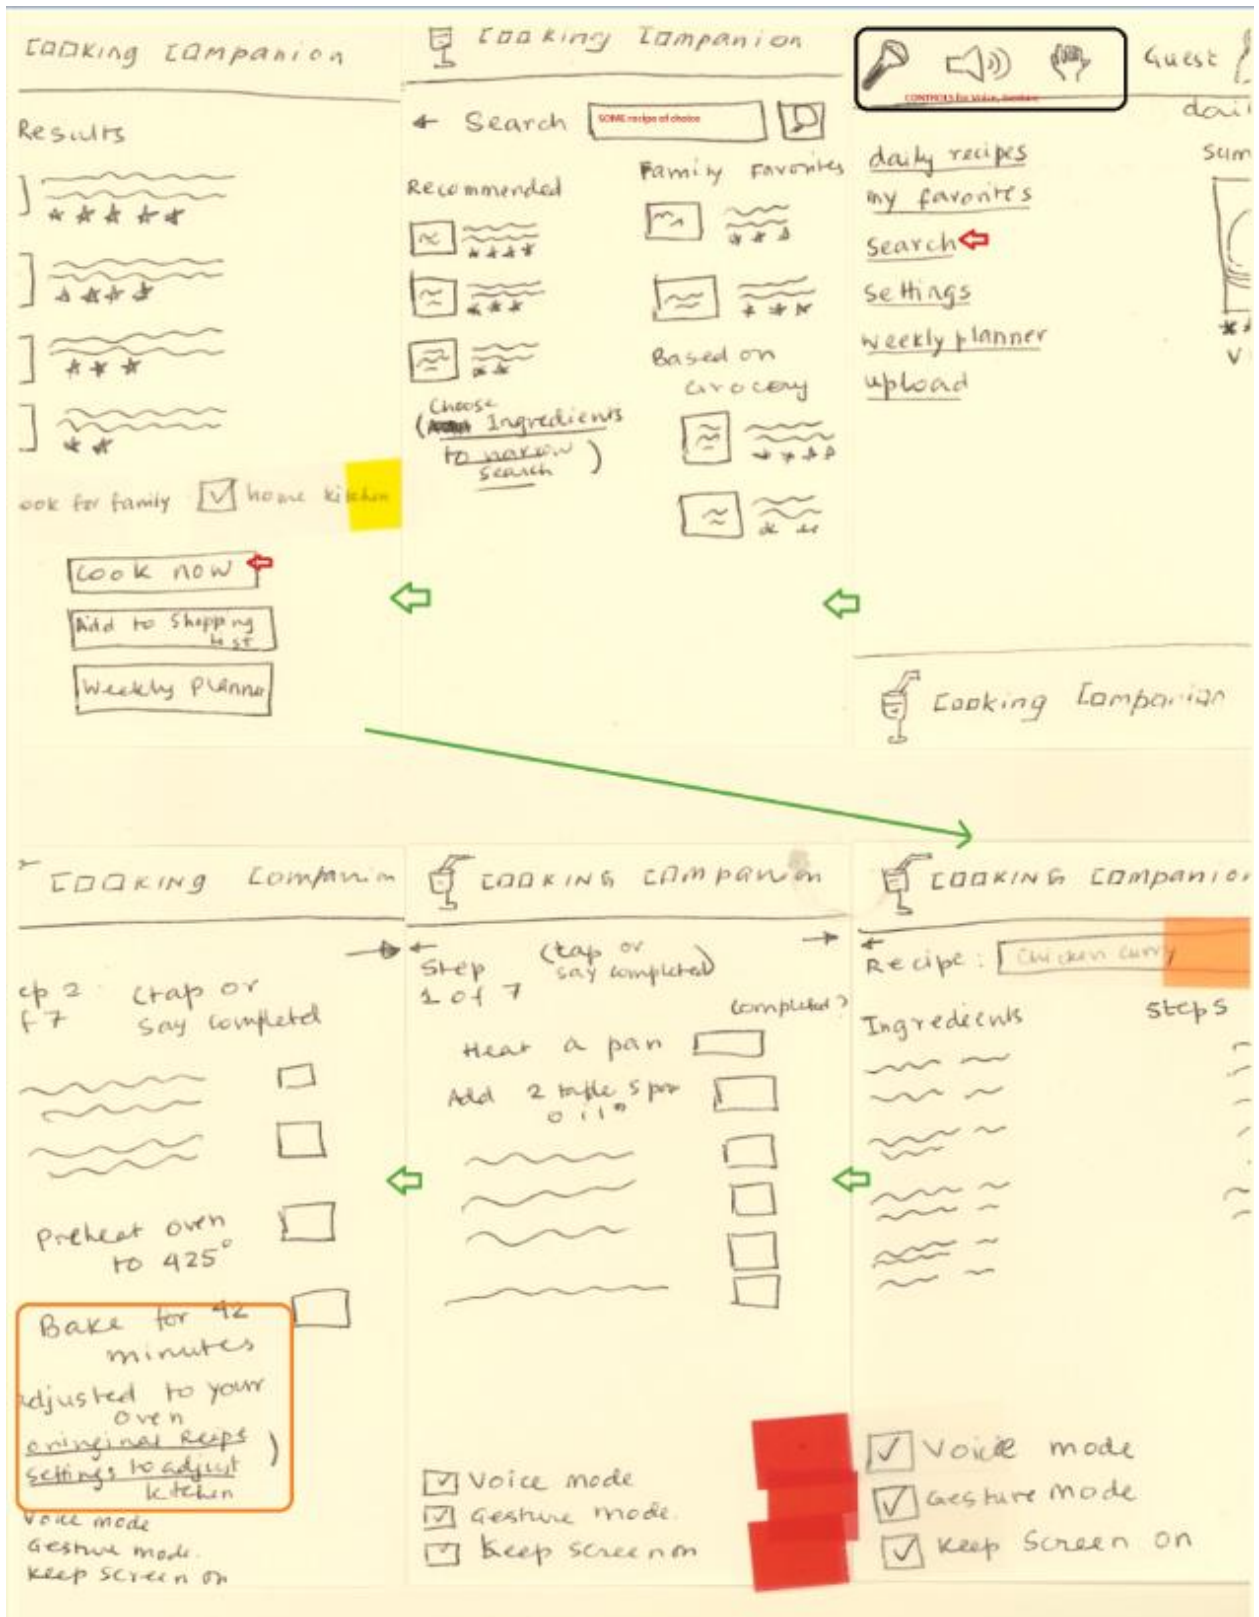 Cooking Companion
Results
ook for family ☑ home kitchen
Cook now
Add to Shopping
list
Weekly Planner
Cooking Companion
← Search
SOME recipe of choice
Recommended
Family Favorites
Based on
Grocery
(Choose
Ingredients
to narrow
search)
Guest
CONTROLS for Voice, Gesture
dail
daily recipes
my favorites
search
settings
weekly planner
upload
sum
V
Cooking Companion
COOKING Companion
ep 2
f 7
(tap or
say completed
Preheat oven
to 425°
Bake for 42
minutes
adjusted to your
oven
settings to adjust
kitchen
)
Voice mode
Gesture mode.
Keep screen on
COOKING COMPANION
Step
1 of 7
(tap or
say completed)
completed?
Heat a pan
Add 2 table spn
oil"
Voice mode
Gesture mode.
Keep screen on
COOKING COMPANION
Recipe: Chicken curry
Ingredients
Steps
Voice mode
Gesture mode
Keep Screen on